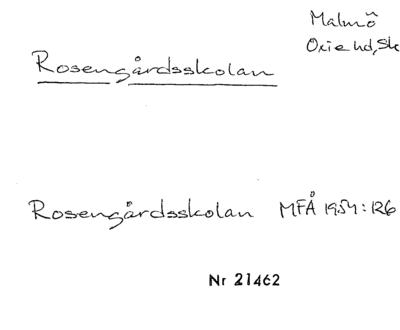 Malmö
Oxie hd, Sk
Rosengårdsskolan
Rosengårdsskolan MFÅ 1954:126
Nr 21462